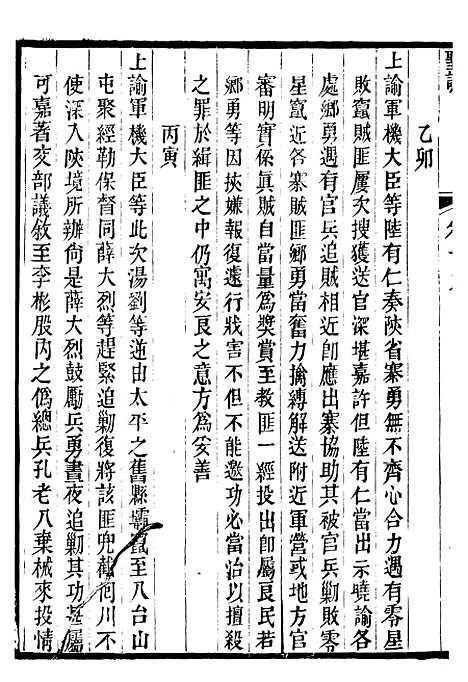 聖訓
乙卯
上諭軍機大臣等陸有仁奏陝省寨勇無不齊心合力遇有零星
敗竄賊匪屢次搜獲送官深堪嘉許但陸有仁當出示曉諭各
處鄉勇遇有官兵追賊相近卽應出寨協助其被官兵勦敗零
星竄近各寨賊匪鄉勇當奮力擒縛解送附近軍營或地方官
審明實係眞賊自當量爲奬賞至敎匪一經投出卽屬良民若
鄉勇等因挾嫌報復遽行戕害不但不能邀功必當治以擅殺
之罪於緝匪之中仍寓安良之意方爲妥善
丙寅
上諭軍機大臣等此次湯劉等逆由太平之舊縣壩竄至八台山
屯聚經勒保督同薛大烈等趕緊追勦復將該匪兜截囘川不
使深入陝境所辦尙是薛大烈鼓勵兵勇晝夜追勦其功甚屬
可嘉著交部議敘至李彬股內之僞總兵孔老八棄械來投情